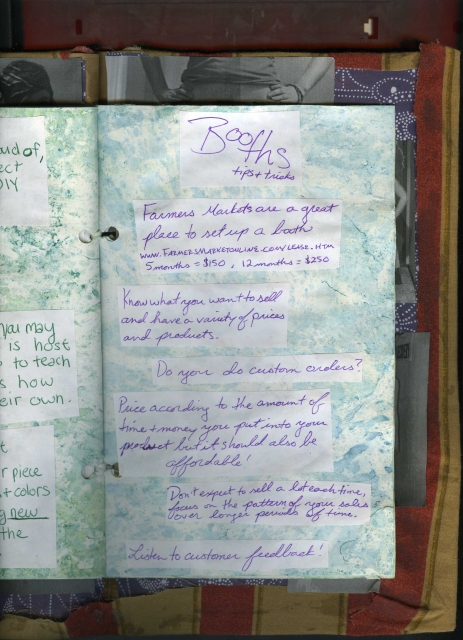 oud of,
ect
DIY
You may
is host
to teach
s how
eir own.
t
r piece
+ colors
g new
the
Booths
tips + tricks
Farmers Markets are a great
place to set up a booth
www.FarmersMarketOnline.com/lease.htm
5 months = $150, 12 months = $250
Know what you want to sell
and have a variety of prices
and products.
Do you do custom orders?
Price according to the amount of
time + money you put into your
product but it should also be
affordable!
Don't expect to sell a lot each time,
focus on the pattern of your sales
over longer periods of time.
Listen to customer feedback!